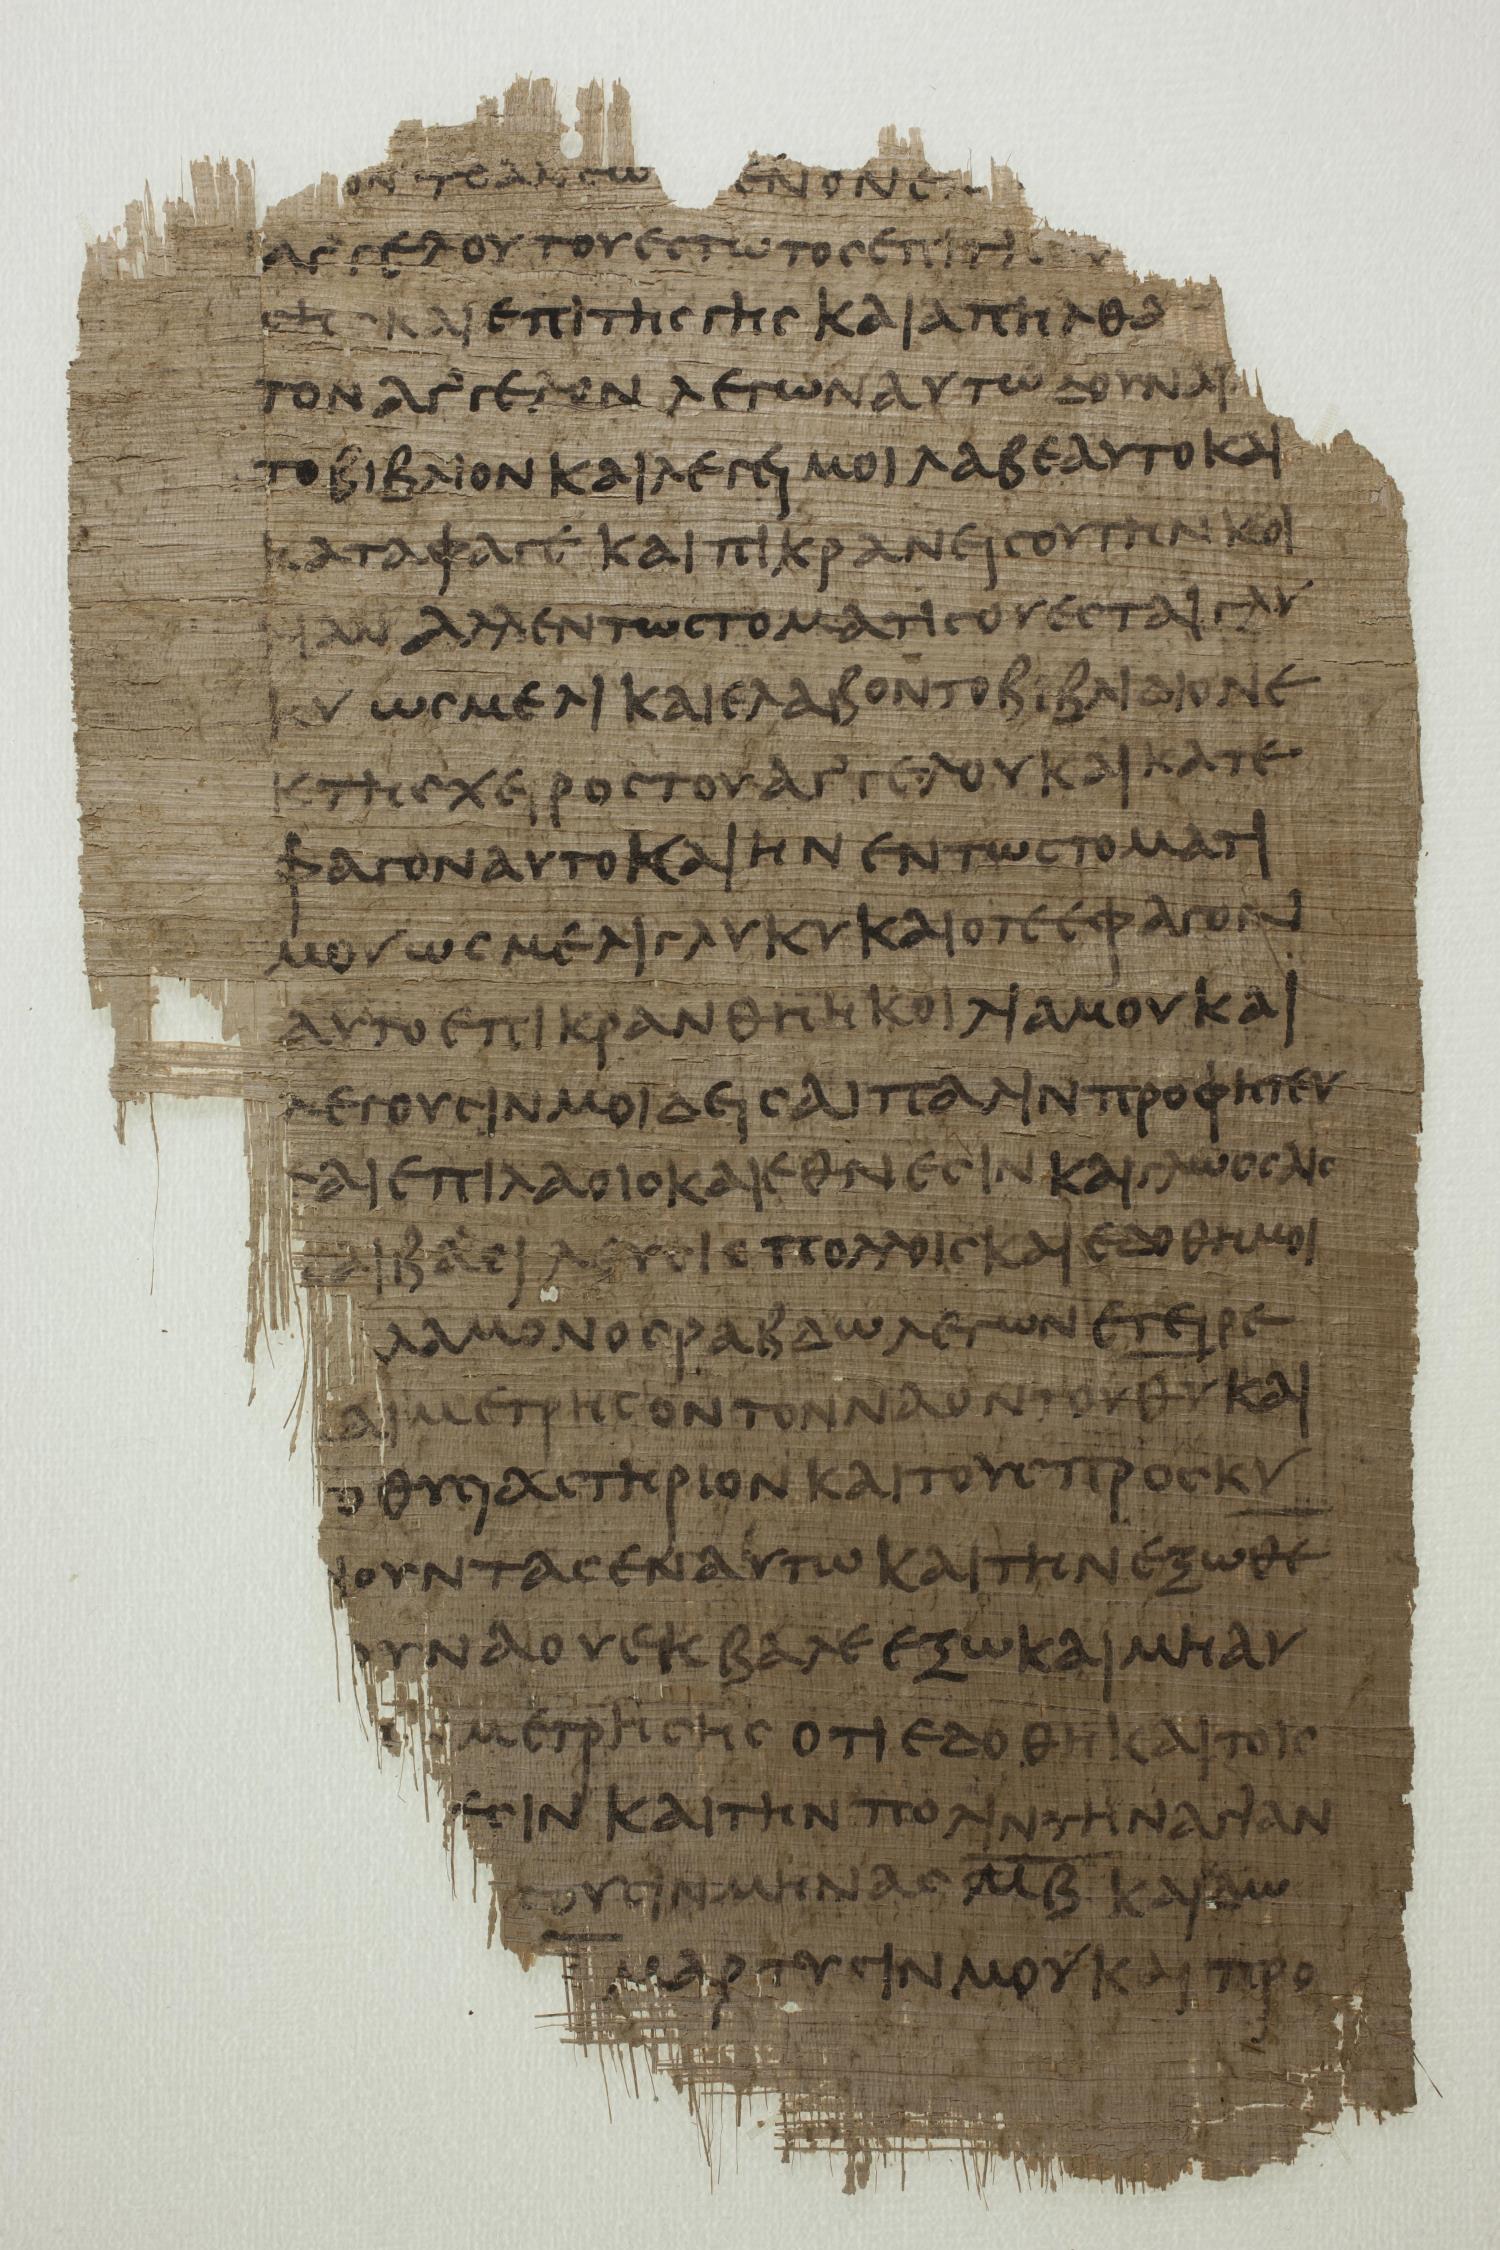 ον τὸ ἀνεῳ ένον ε
αγγελου του εστωτος επι της
κ και επι της γης και απηλθα
τον αγ'γελον λεγων αυτω δουναι
το βιβλιον και λεγει μοι λαβε αυτο και
καταφαγε και πικρανει σου την κοι
λιαν αλλ εν τω στοματι σου εσται γλυ
κυ ως μελι και ελαβον το βιβλιδιον ε
κ της χειρος του αγ'γελου και κατε
φαγον αυτο και ην εν τω στοματι
μου ως μελι γλυκυ και οτε εφαγον
αυτο επικρανθη η κοιλια μου και
λεγουσιν μοι δει σαι παλιν προφητευ
σαι επι λαοις και εθνεσιν και γλωσσαις
και βασιλευσι πολλοις και εδοθη μοι
καλαμον ος ραβδω λεγων εγειρε
και μετρησον τον ναον του θυ και
το θυσιαστηριον και τους προσκυ
νουντας εν αυτω και την εξωθε
ου ναου εκβαλε εξω και μη αυ
μετρησης οτι εδοθη και τοις
εσιν και την πολιν την αγιαν
τουσιν μηνας μβ και δω
μαρτυσιν μου και προ